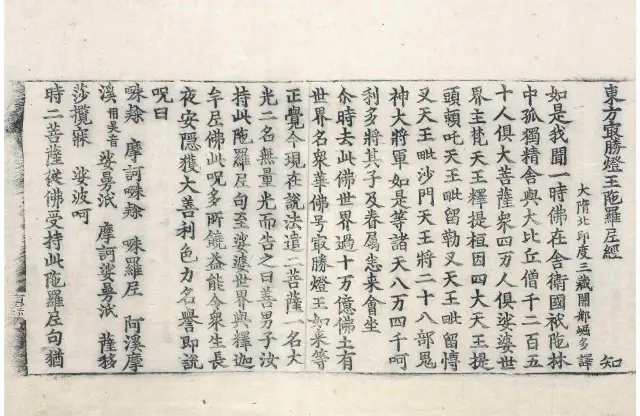 東方冣勝燈王陁羅尼經
大隋北印度三藏闍那崛多譯 知
如是我聞一時佛在舍衛國祇陁林
中孤獨精舍與大比丘僧千二百五
十人俱大菩薩衆四万人俱娑婆世
界主梵天王釋提桓因四大天王提
頭頼吒天王毗留勒叉天王毗留愽
叉天王毗沙門天王將二十八部鬼
神大將軍如是等諸天八万四千呵
利多將其子及眷屬悉来會坐
尒時去此佛世界過十万億佛土有
世界名衆華佛号冣勝燈王如来等
正覺今現在說法遣二菩薩一名大
光二名無量光而告之曰善男子汝
持此陁羅尼句至娑婆世界與釋迦
牟尼佛此呪多所饒益能令衆生長
夜安隱獲大善利色力名譽即說
呪曰
摩訶 羅尼 阿溪摩
溪 用吴音 摩訶
莎攬寐 娑波呵
時二菩薩從佛受持此陁羅尼句猶